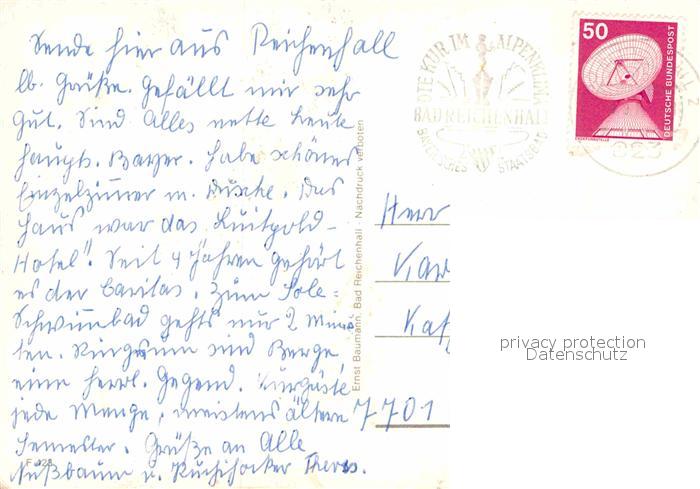 Sende hier aus Reichenhall
lb. Grüße. Gefällt mir sehr
gut. Sind Alles nette Leute
haupts. Bayer. Habe schönes
Einzelzimmer m. Dusche. Das
Haus war das Luitpold-
Hotel". Seit 4 Jahren gehört
es der Caritas. Zum Sole-
Schwimmbad gehts nur 2 Minu-
ten. Ringsum sind Berge,
eine herrl. Gegend. Kurgäste
jede Menge, meistens ältere
Semester. Grüße an Alle
Nußbaum u. Theres.
F 928
Ernst Baumann, Bad Reichenhall - Nachdruck verboten
KUR IM ALPENKLIMA
BAD REICHENHALL
BAYERISCHES STAATSBAD
50
DEUTSCHE BUNDESPOST
823
Herr
Kar
Kat
7701
privacy protection
Datenschutz